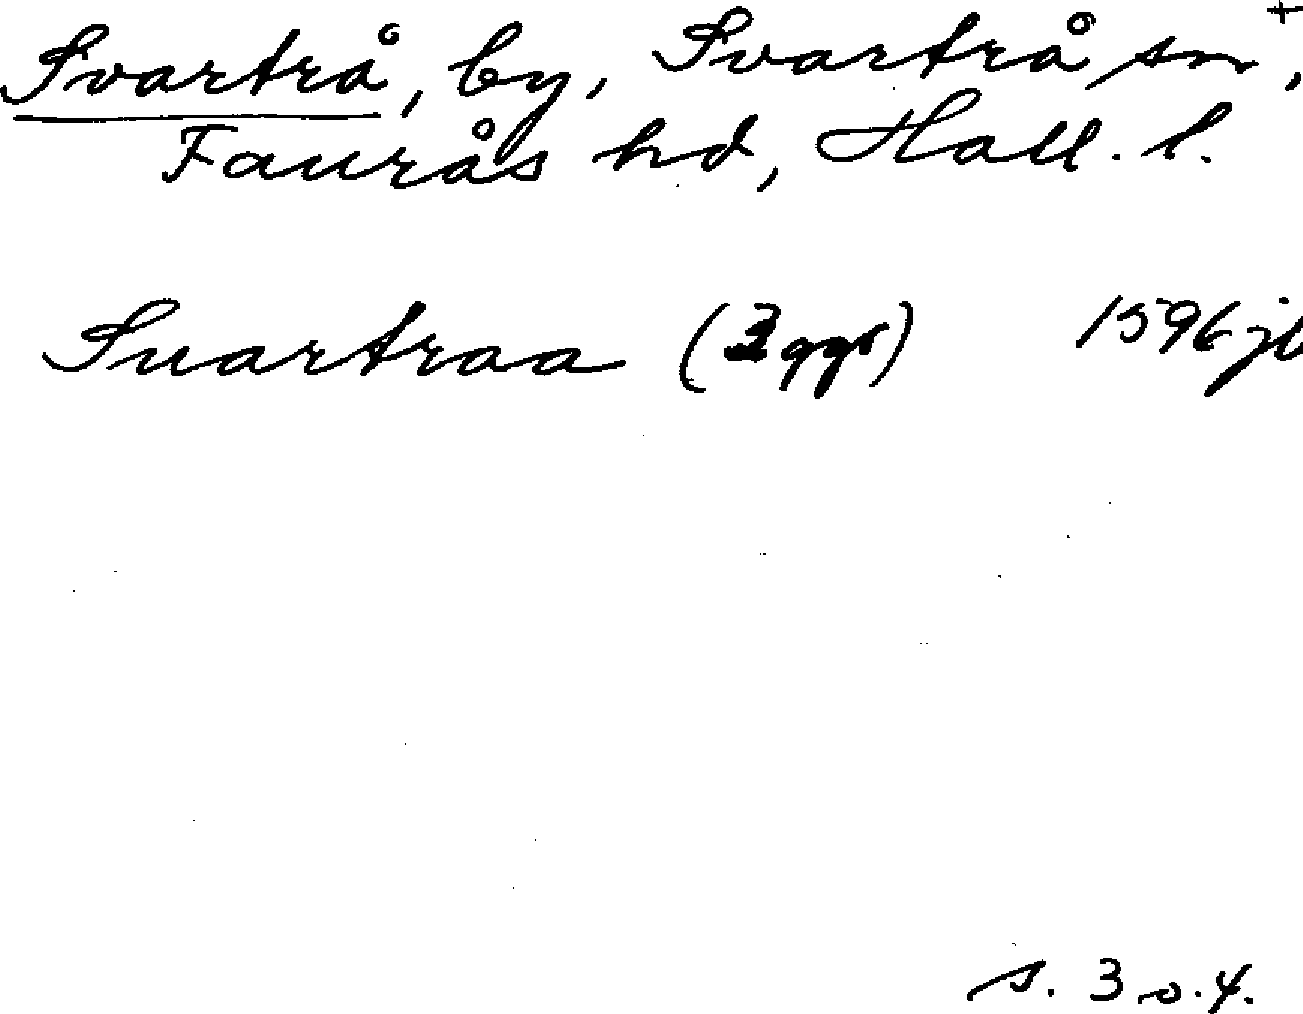 Svartrå, by, Svartrå sn, +
Faurås hd, Hall. l.
Suartraa (3 ggr) 1596 jb
s. 3 o. 4.